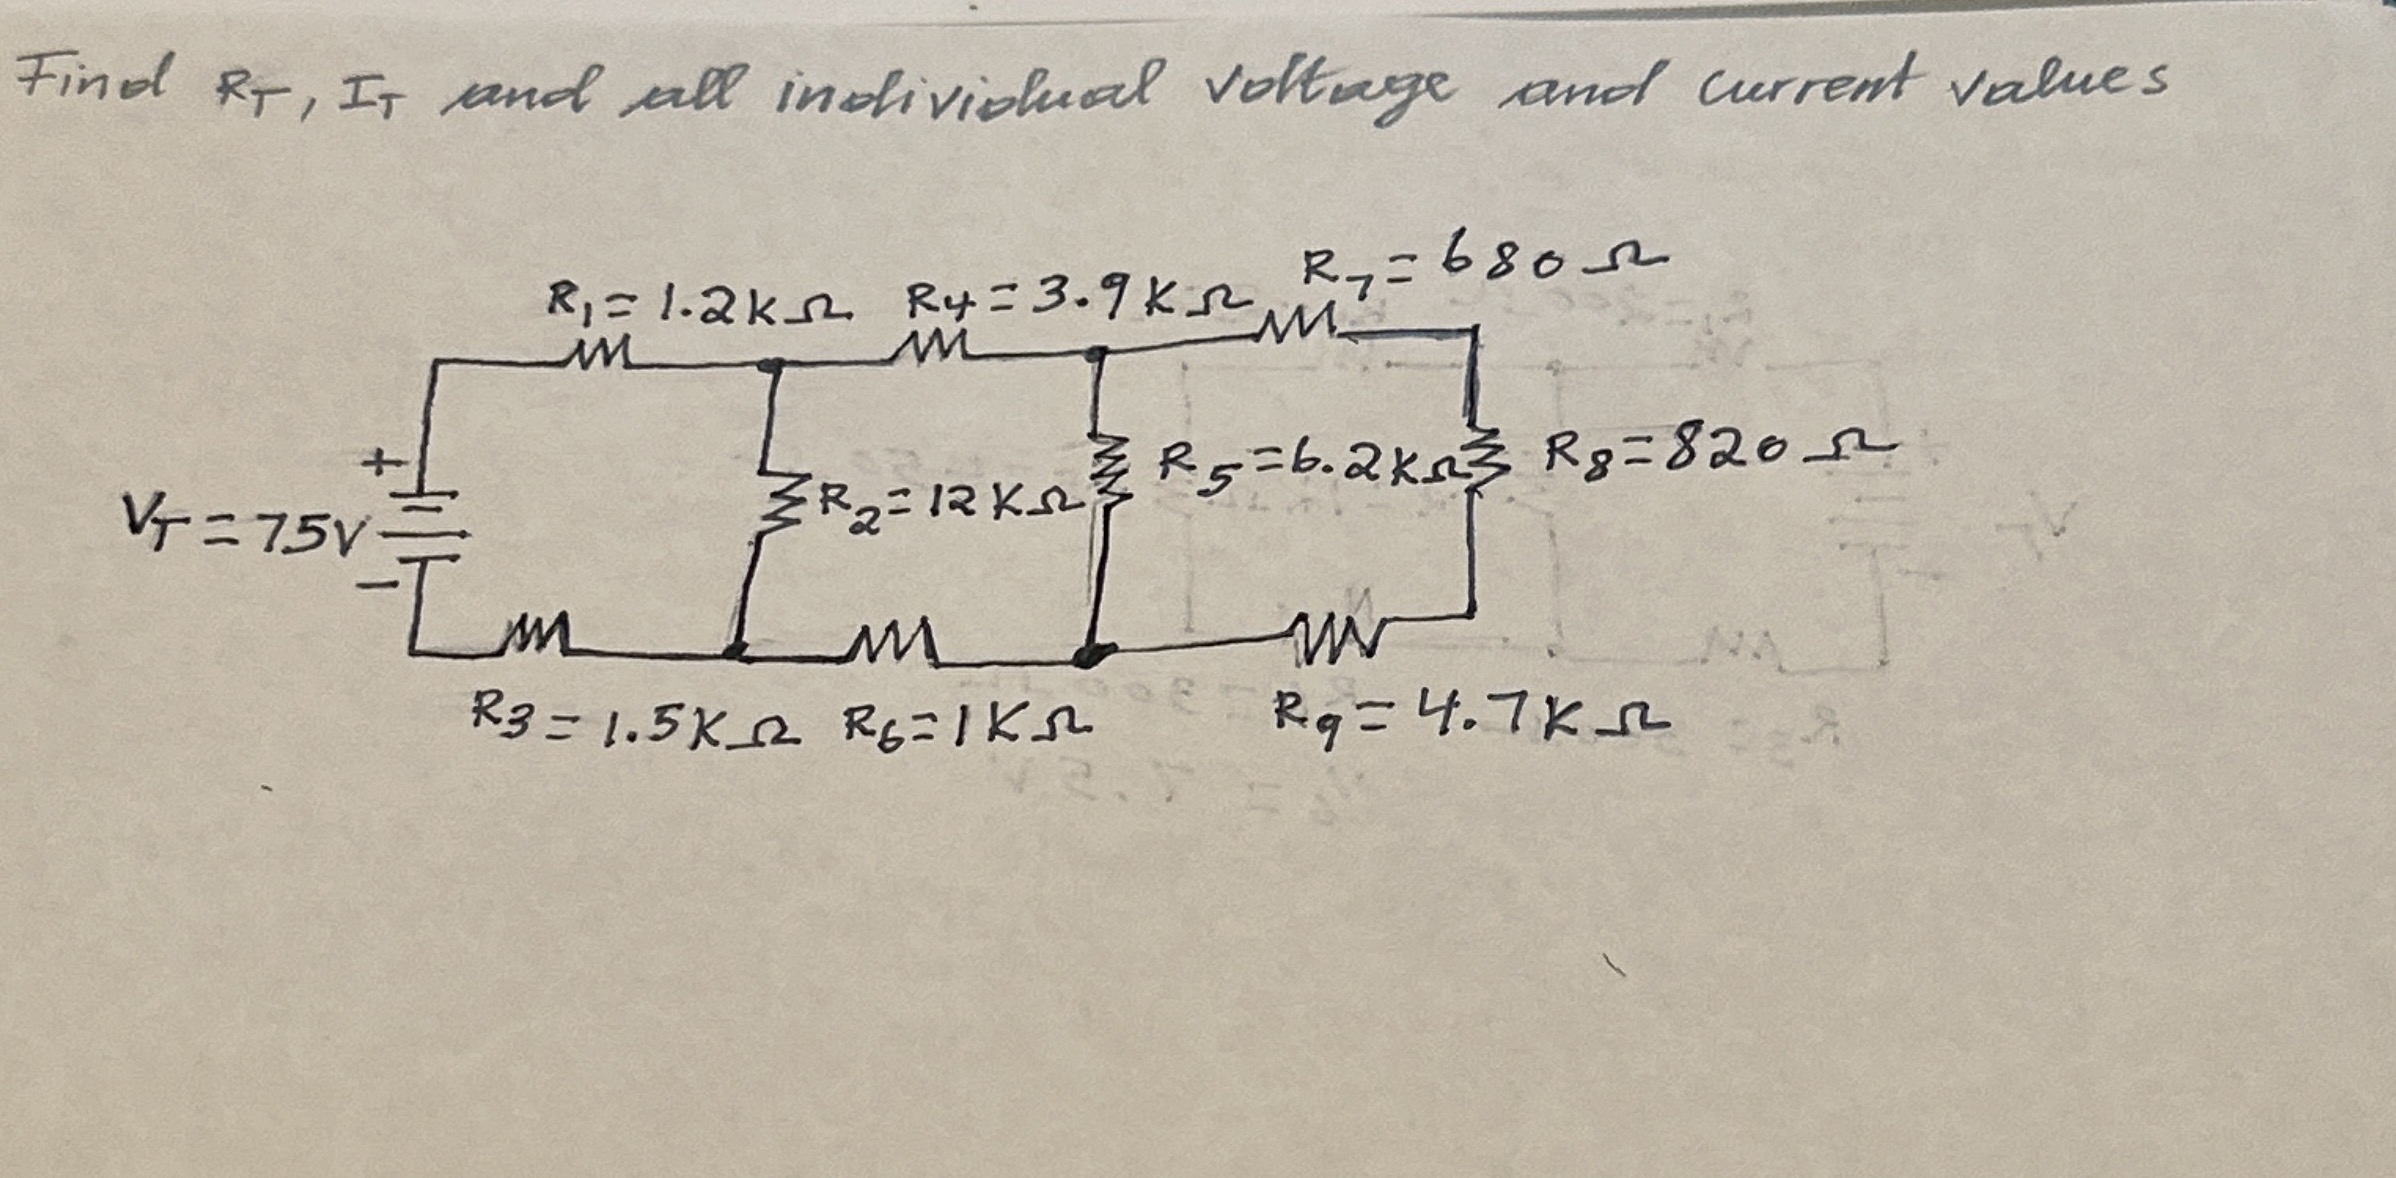 Find RT, IT and all individual voltage and current values
R7=680Ω
R1=1.2KΩ R4=3.9KΩ
+
VT=75V
R2=12KΩ R5=6.2KΩ R8=820Ω
−
R3=1.5KΩ R6=1KΩ R9=4.7KΩ